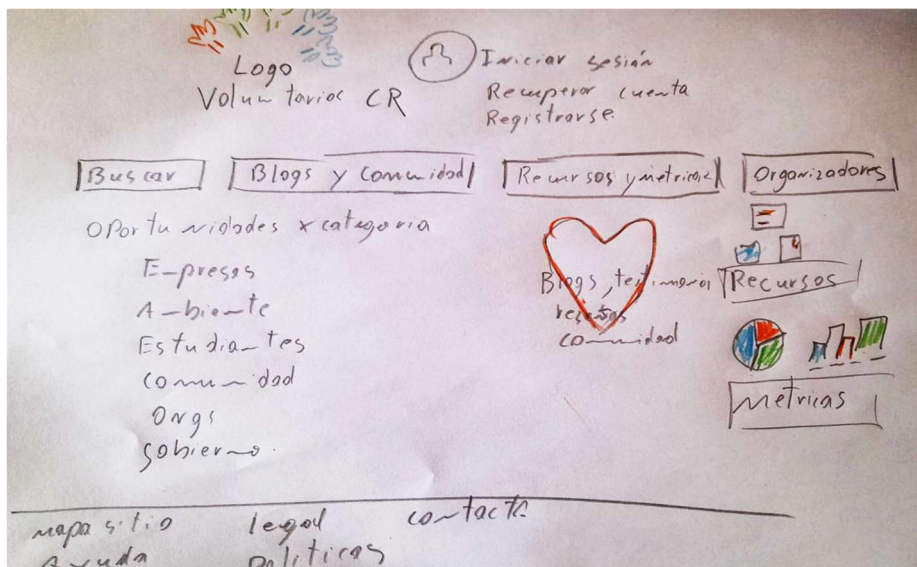 Logo
Voluntarios CR
Iniciar sesión
Recuperar cuenta
Registrarse
Buscar
Blogs y Comunidad
Recursos y metricas
Organizadores
Oportunidades x categoria
Empresas
Ambiente
Estudiantes
Comunidad
Ongs
Gobierno
Blogs, testimonios
reseñas
comunidad
Recursos
Metricas
mapa sitio
legal
contacto
Ayuda
Politicas